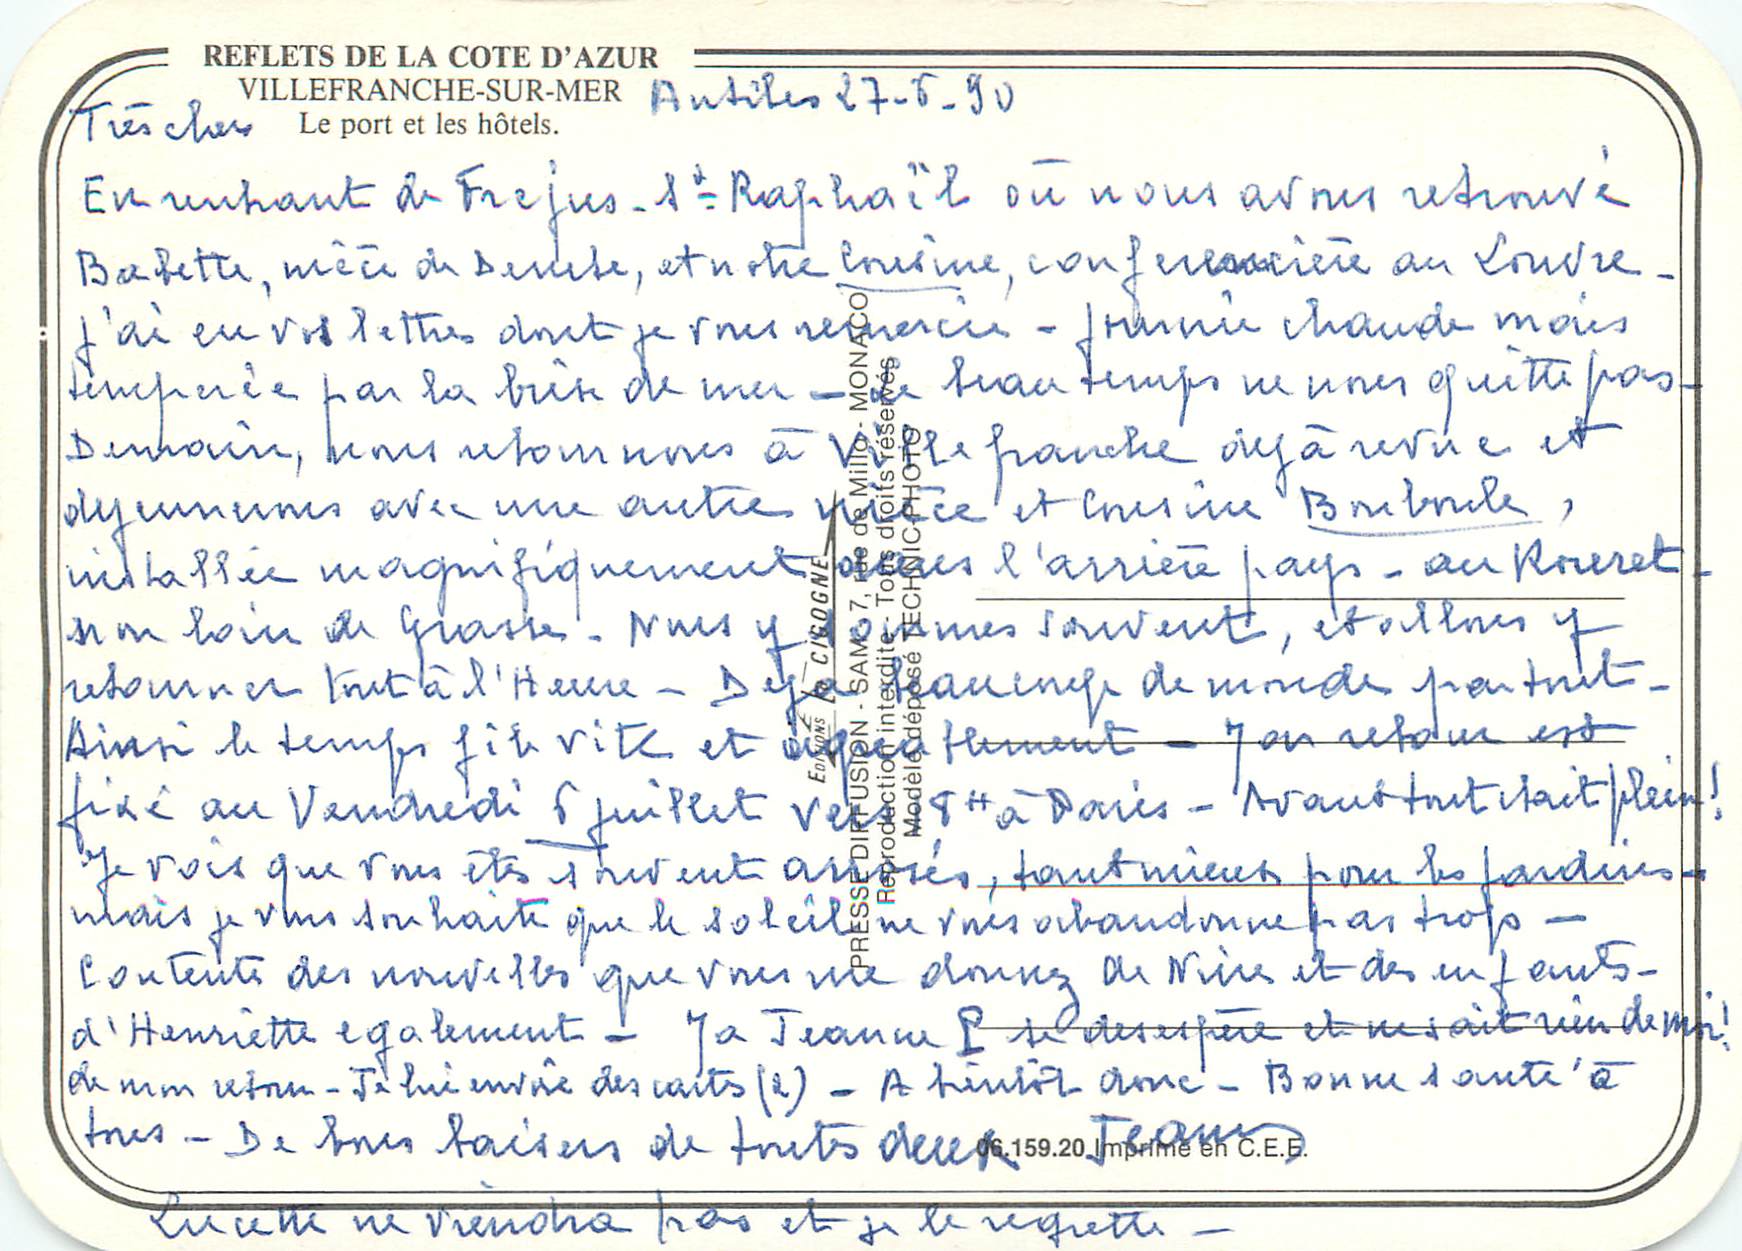 REFLETS DE LA COTE D'AZUR
VILLEFRANCHE-SUR-MER
Le port et les hôtels.
Antibes 27-6-90
Très chers
En rentrant de Frejus-St-Raphaël où nous avons retrouvé
Babette, nièce de Denise, et notre Cousine, conferencière au Louvre-
j'ai eu vos lettres dont je vous remercie - journée chaude mais
temperée par la brise de mer - Le beau temps ne nous quitte pas-
Demain, nous retournons à Villefranche déjà revue et
dejeunerons avec une autre nièce et Cousine Bouboule,
installée magnifiquement dans l'arrière pays - au Rouret-
non loin de Grasse. Nous y sommes souvent, et allons y
retourner tout à l'Heure - Deja beaucoup de monde partout-
Ainsi le temps file vite et agreablement - Mon retour est
fixé au Vendredi 6 juillet vers 8H à Paris - Avant tout etait plein!
Je vois que vous êtes souvent arrosés, tant mieux pour les jardins-
mais je vous souhaite que le soleil ne vous abandonne pas trop -
Contente des nouvelles que vous me donnez de Nine et des enfants-
d'Henriette egalement - Ma Jeanne P se desespère et ne sait rien de moi!
de mon retour - Je lui envoie des cartes (2) - A bientôt donc - Bonne santé à
tous - De bons baisers de toutes deux
Lucette ne viendra pas et je le regrette -
EDITIONS LA CIGOGNE
PRESSE DIFFUSION - SAM 7, rue de Millo - MONACO
Reproduction interdite. Tous droits réservés
Modèle déposé TECHNIC-PHOTO
06.159.20 Imprimé en C.E.E.